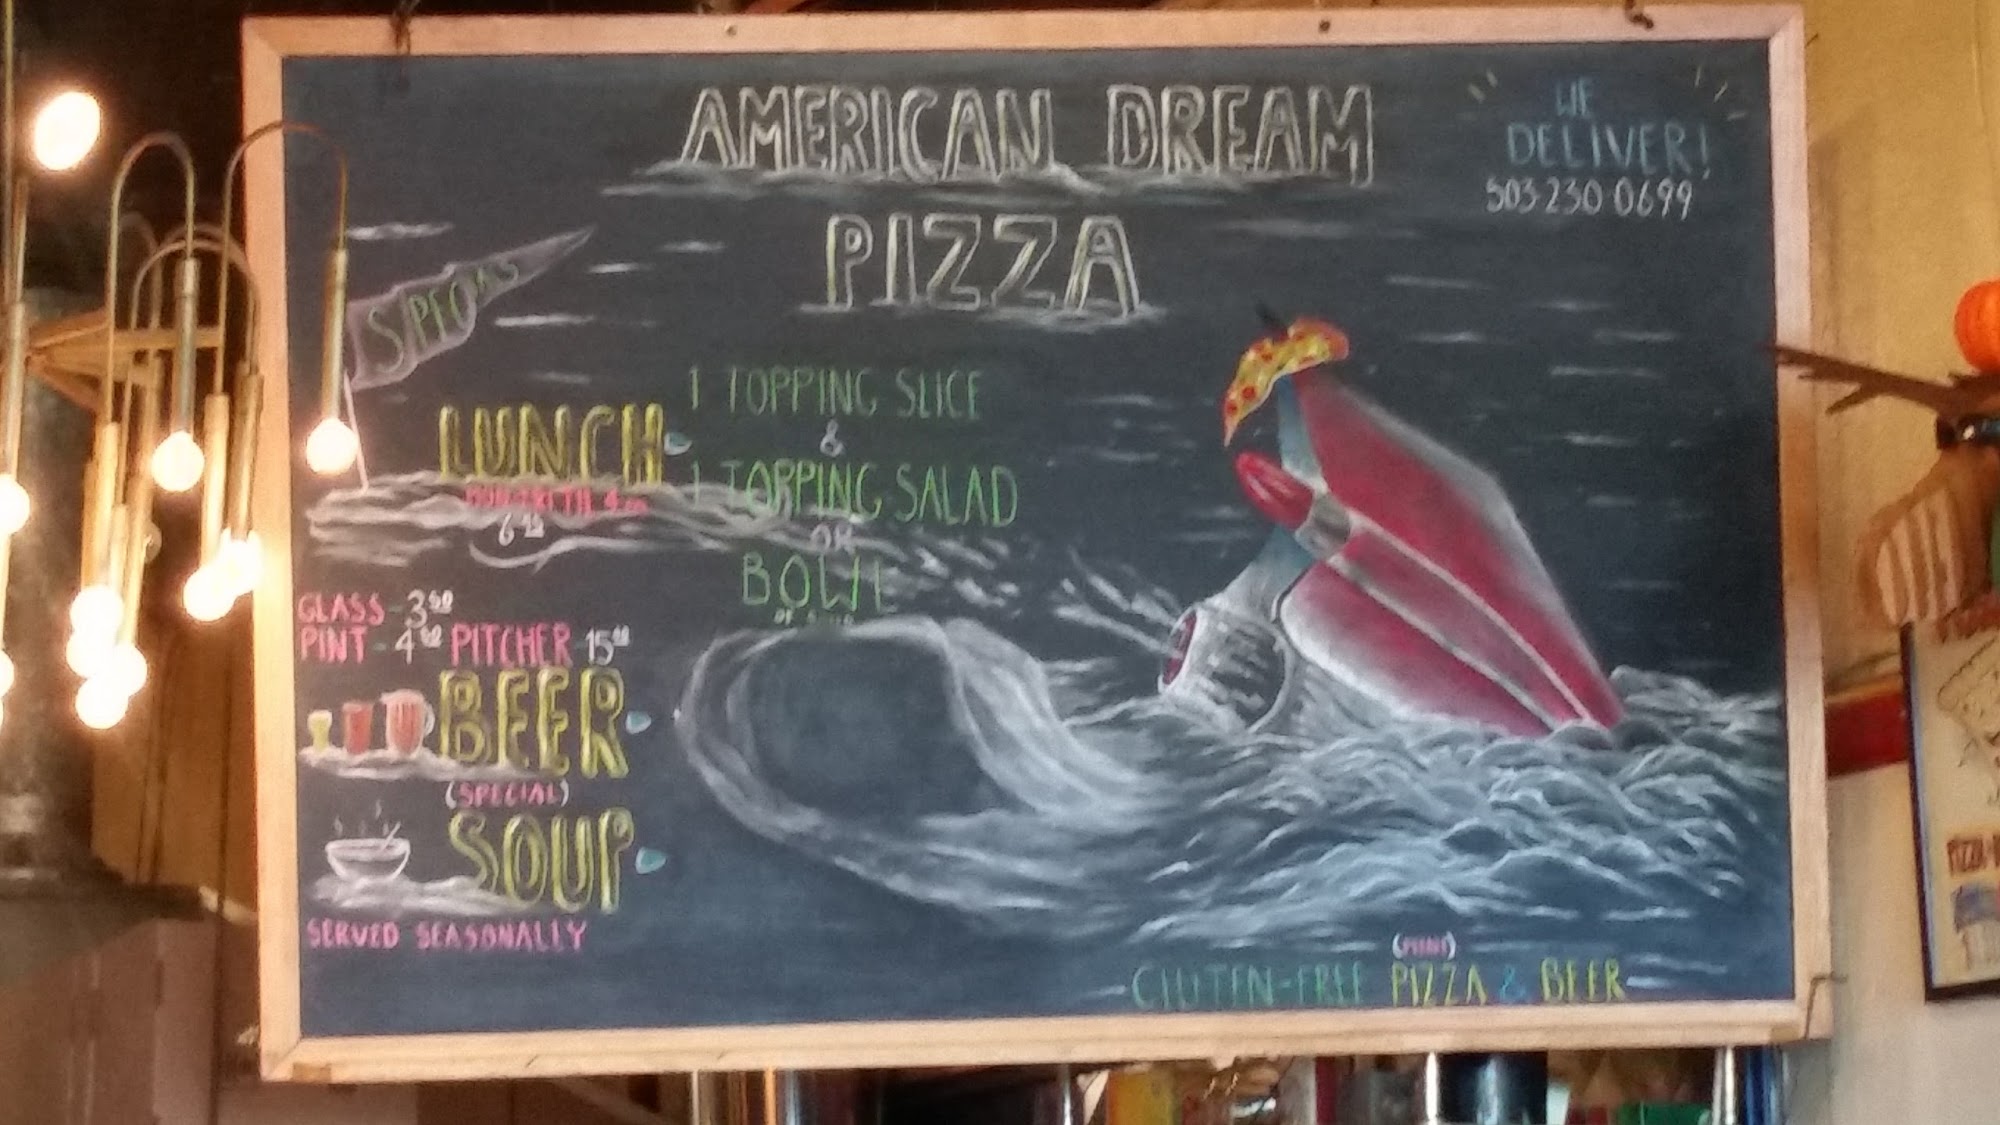 AMERICAN DREAM
PIZZA
WE
DELIVER!
503·230·0699
SPECIALS
LUNCH
6
1 TOPPING SLICE
&
1 TOPPING SALAD
OR
BOWL
GLASS - 3 50
PINT - 4 50 PITCHER 15
BEER
(SPECIAL)
SOUP
SERVED SEASONALLY
GLUTEN-FREE PIZZA & BEER